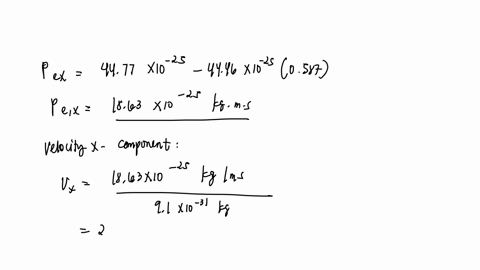 P ex = 44.77 ×10^-25 − 44.46 ×10^-25 (0.587)
P e,x = 18.63 ×10^-25 kg.m.s
Velocity x- component :
Vx = 18.63×10^-25 kg lms
9.1 ×10^-31 kg
= 2